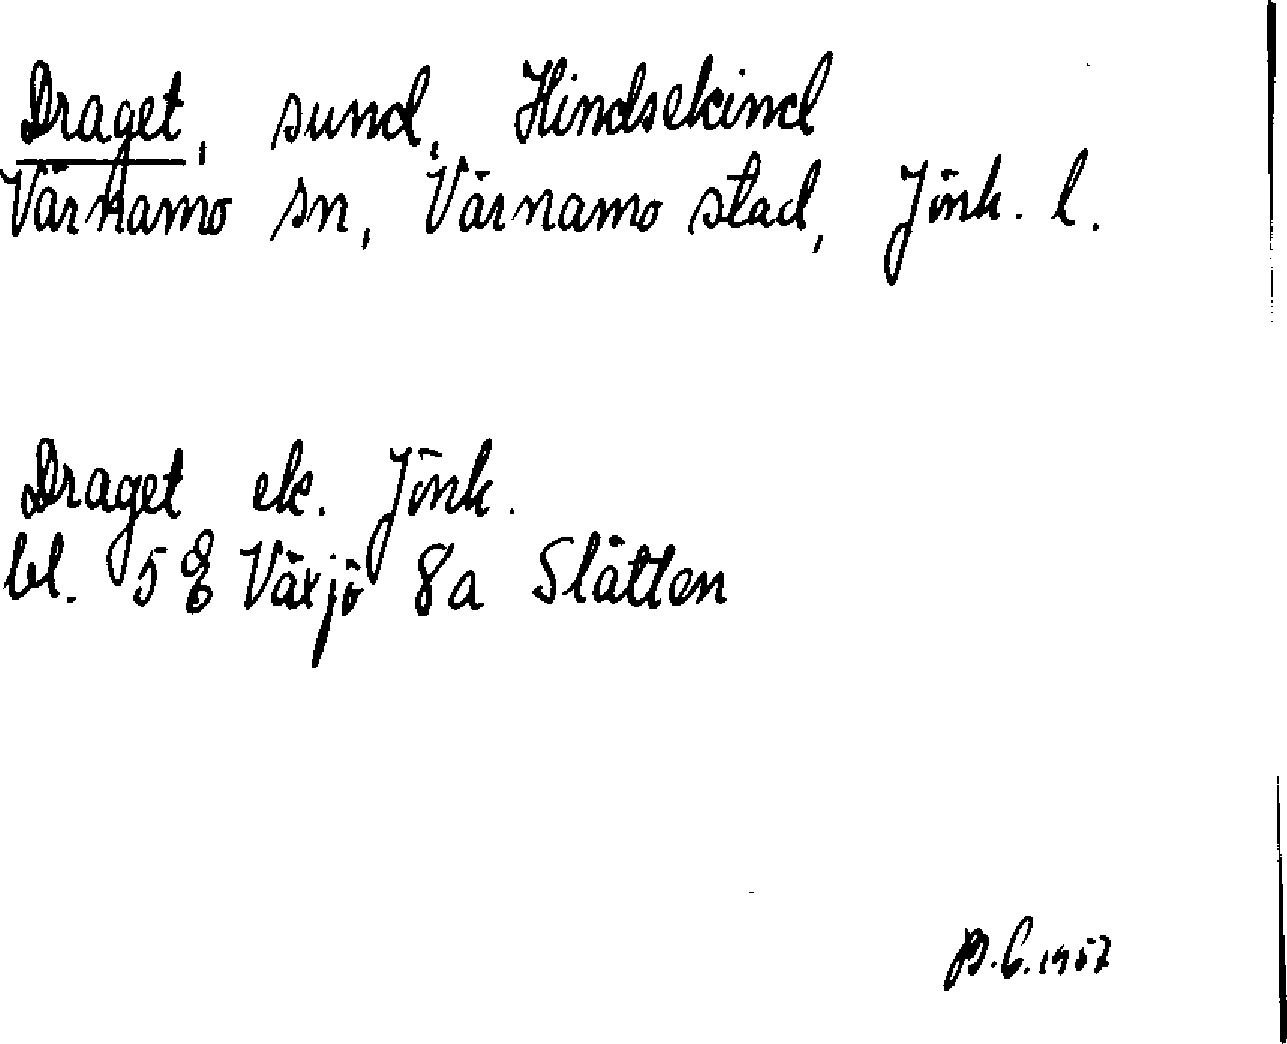 Draget, sund, Hindsekind
Värnamo sn, Värnamo stad, Jönk. l.
Draget ek. Jönk.
bl. 5 E Växjö 8a Slätten
1957